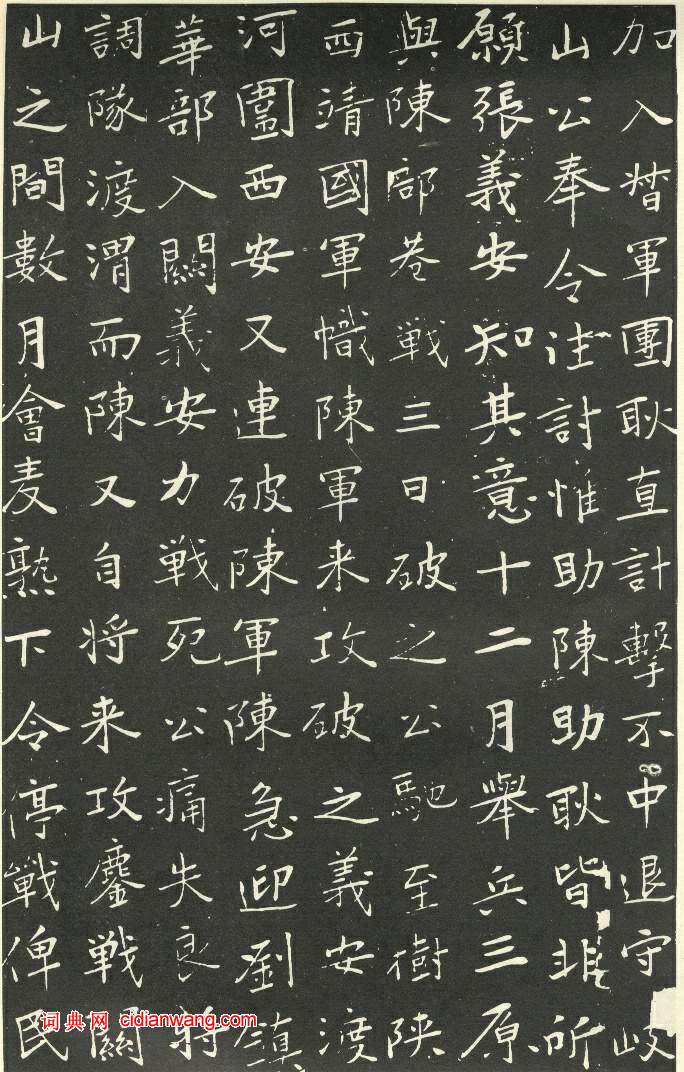 加入督軍團耿直計擊不中退守岐
山公奉令往討惟助陳助耿皆非所
願張義安知其意十二月舉兵三原
與陳部巷戰三日破之公馳至樹陝
西靖國軍幟陳軍来攻破之義安渡
河圍西安又連破陳軍陳急迎劉鎮
華部入關義安力戰死公痛失良将
調隊渡渭而陳又自将来攻鏖戰關
山之間數月會麦熟下令停戰俾民
词典网 cidianwang.com